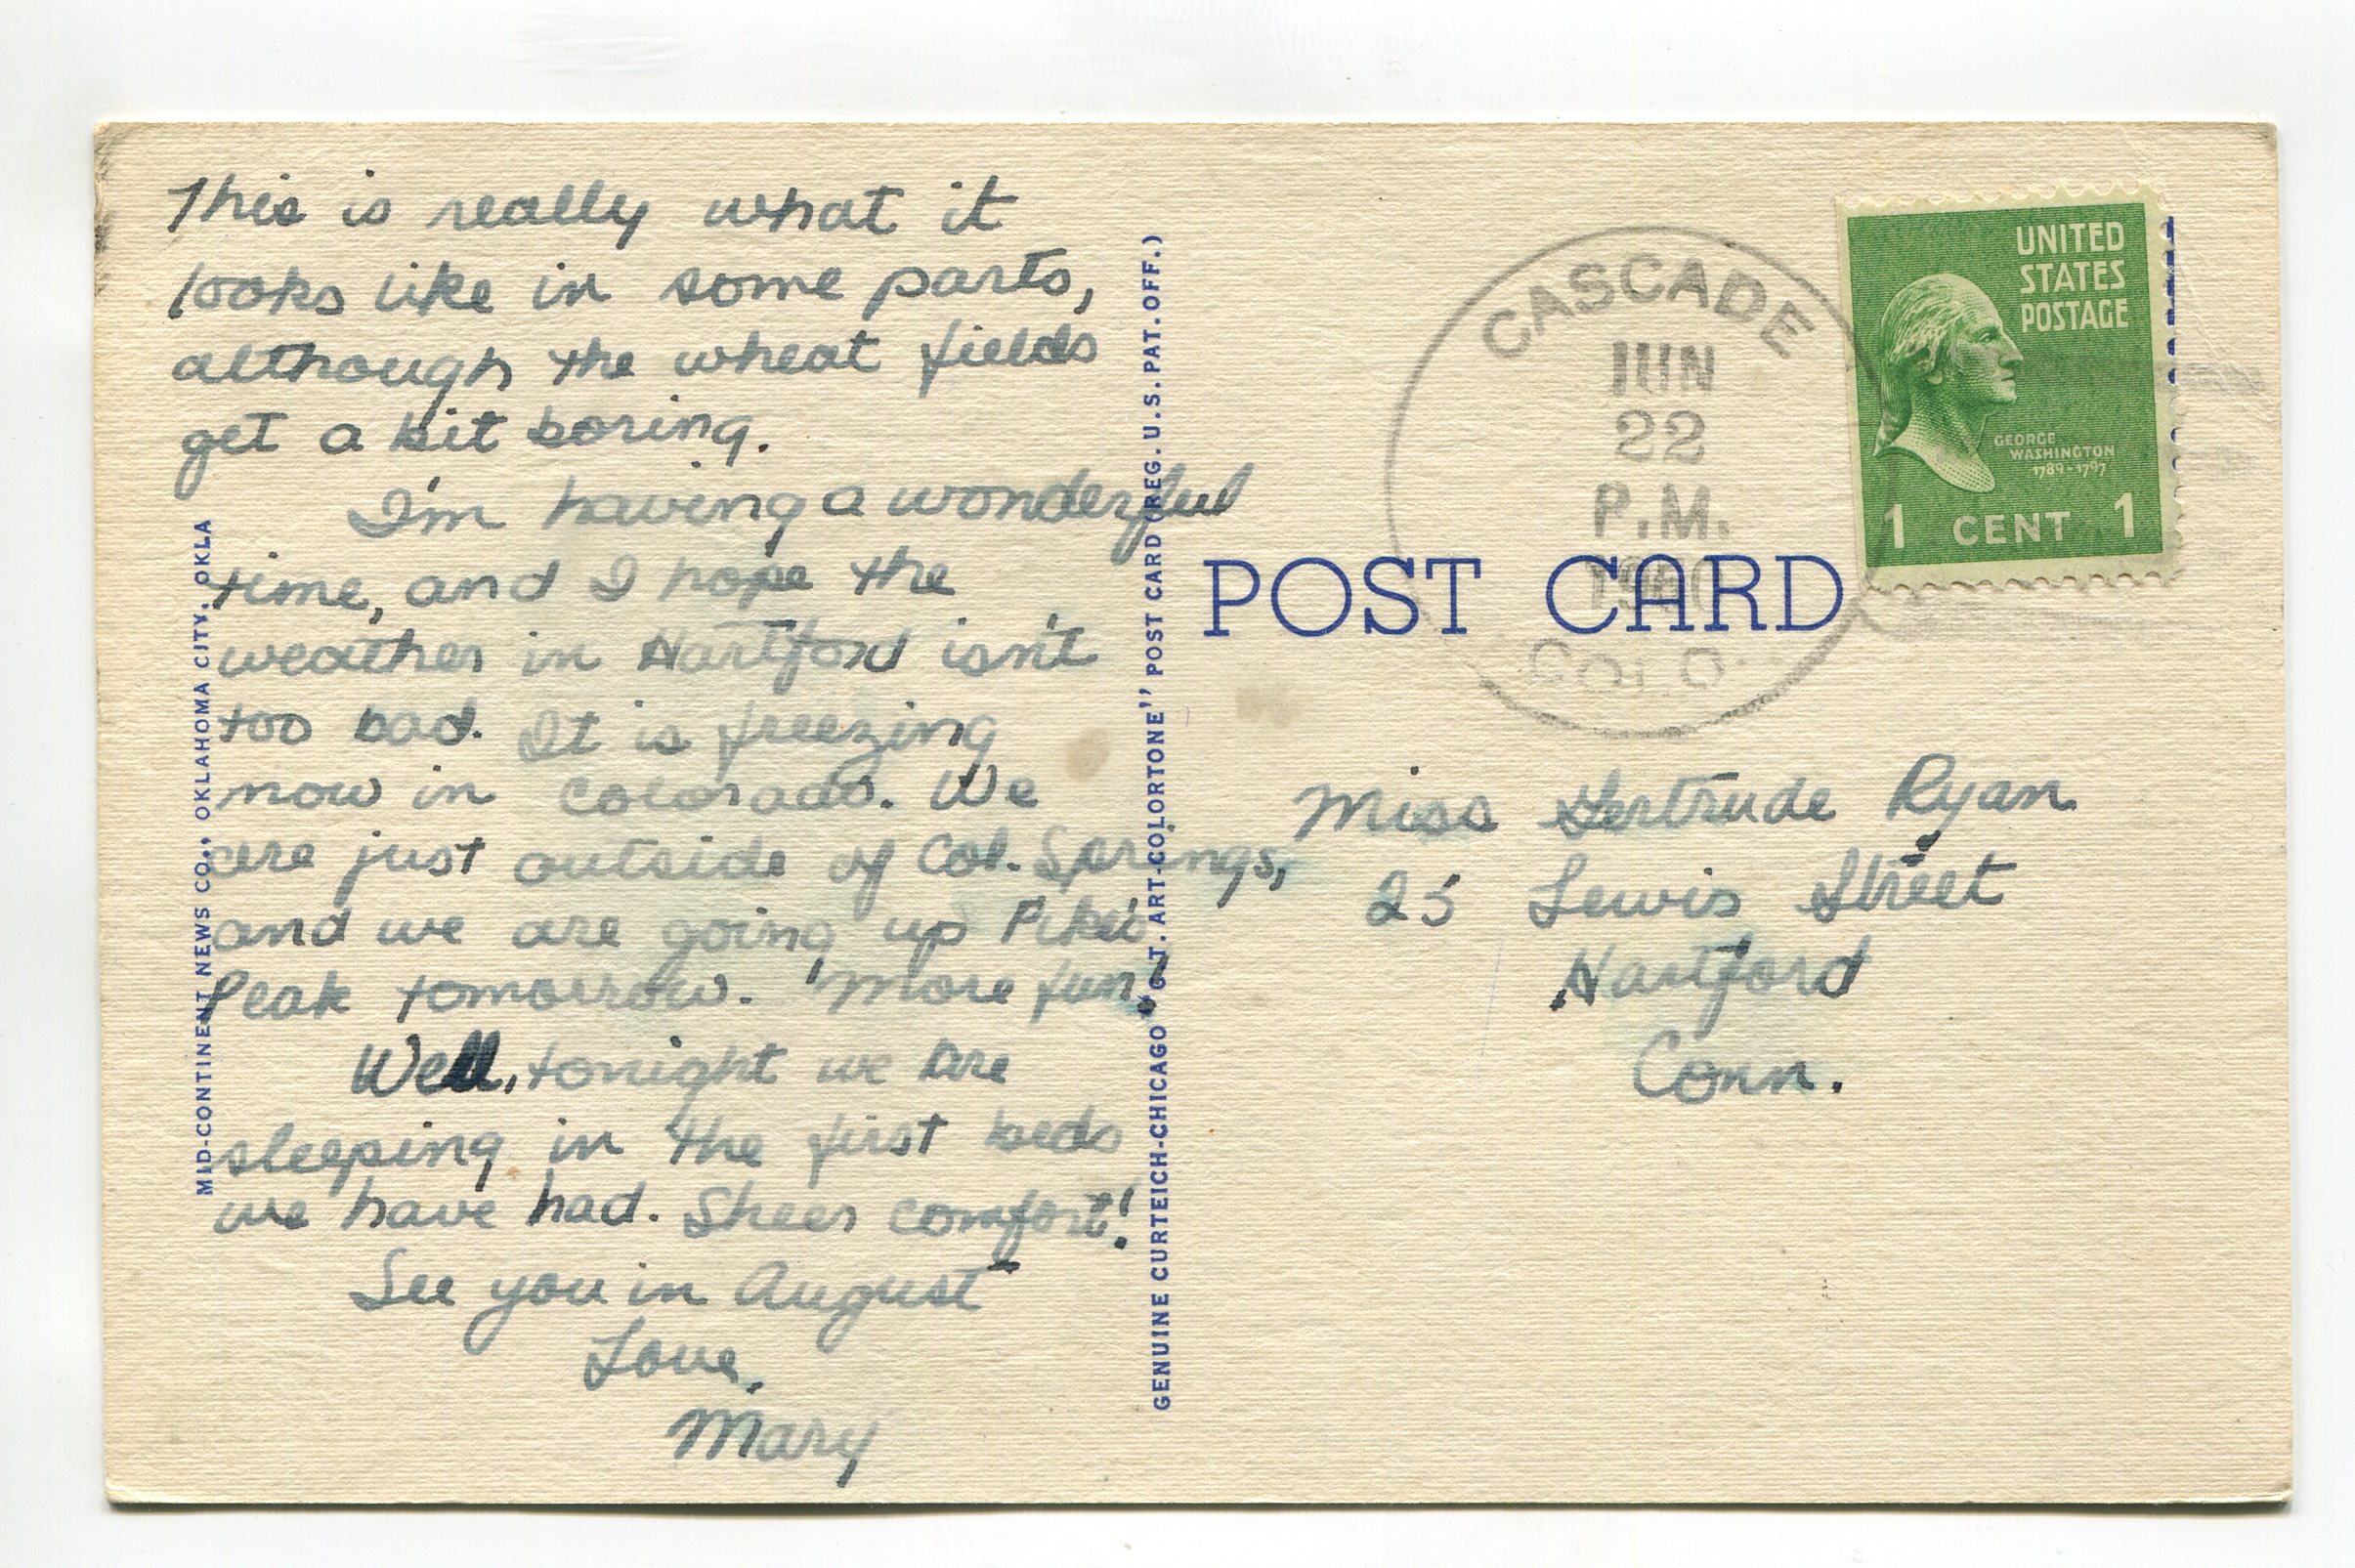 This is really what it
looks like in some parts,
although the wheat fields
get a bit boring.
I'm having a wonderful
time, and I hope the
weather in Hartford isn't
too bad. It is freezing
now in Colorado. We
are just outside of Col. Springs,
and we are going up Pike's
Peak tomorrow. More fun!
Well, tonight we are
sleeping in the first beds
we have had. Sheer comfort!
See you in August
Love,
Mary
MID-CONTINENT NEWS CO., OKLAHOMA CITY, OKLA
GENUINE CURTEICH-CHICAGO "C.T. ART-COLORTONE" POST CARD (REG. U.S. PAT. OFF.)
POST CARD
CASCADE
JUN
22
P.M.
1940
COLO.
UNITED
STATES
POSTAGE
GEORGE
WASHINGTON
1789-1797
1 CENT 1
Miss Gertrude Ryan
25 Lewis Street
Hartford
Conn.